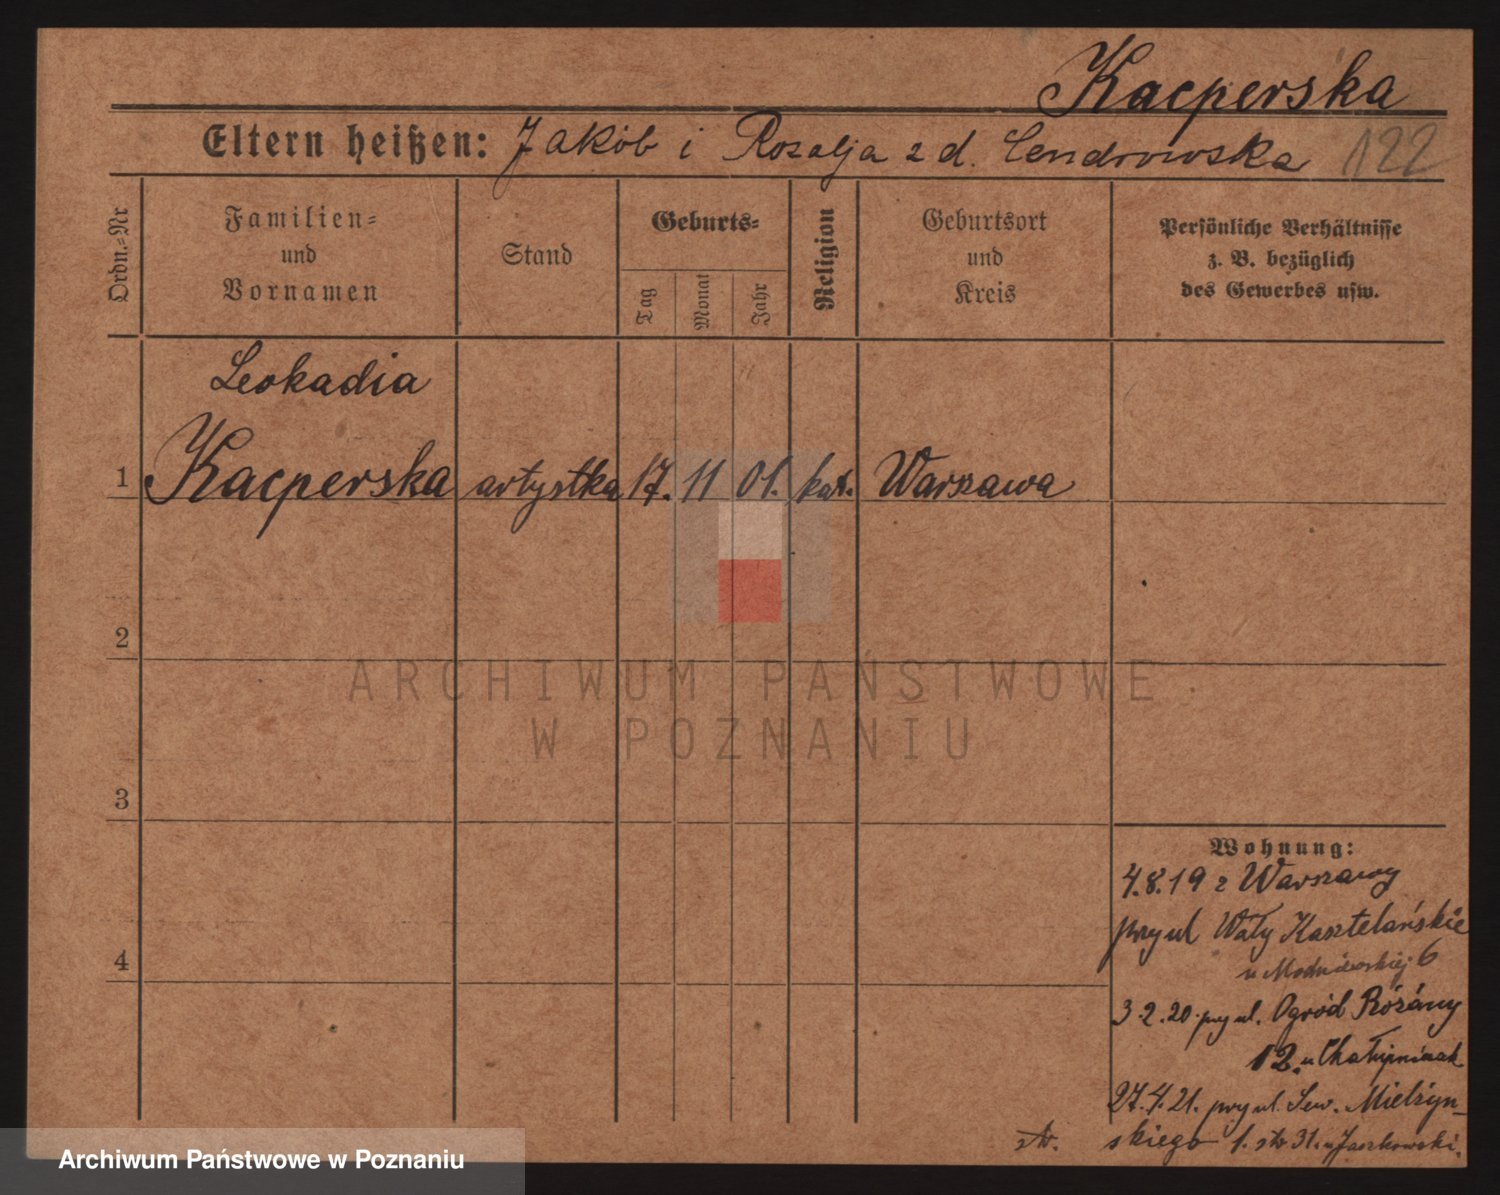 Kacperska
Eltern heißen: Jakób i Rozalja z d. Cendrowska 122
Ordn.=Nr
Familien=
und
Vornamen
Stand
Geburts=
Tag
Monat
Jahr
Religion
Geburtsort
und
Kreis
Persönliche Verhältnisse
z. B. bezüglich
des Gewerbes usw.
Leokadia
1 Kacperska artystka 17. 11 01. kat. Warszawa
2
3
4
Wohnung:
4.8.19 z Warszawy
przy ul Wały Kasztelańskie
u 6
3.2.20 przy ul. Ogród Różány
12. u
27.4.21. przy ul. Sew. Mielżyn-
skiego 1. u Jaszkowski.
ARCHIWUM PAŃSTWOWE
W POZNANIU
Archiwum Państwowe w Poznaniu